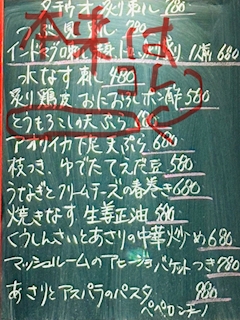 タチウオ炙り刺し 780
本来は
水なす刺し 480
コレ
炙り鶏皮おにおろしポン酢 580
とうもろこしの天ぷら
アオリイカ下足天ぷら 680
枝つき、ゆでたてえだ豆 580
うなぎとクリームチーズの春巻き 680
焼きなす 生姜正油 580
くうしんさいとあさりの中華炒め 680
マッシュルームのアヒージョ バケットつき 780
あさりとアスパラのパスタ 980
ペペロンチーノ